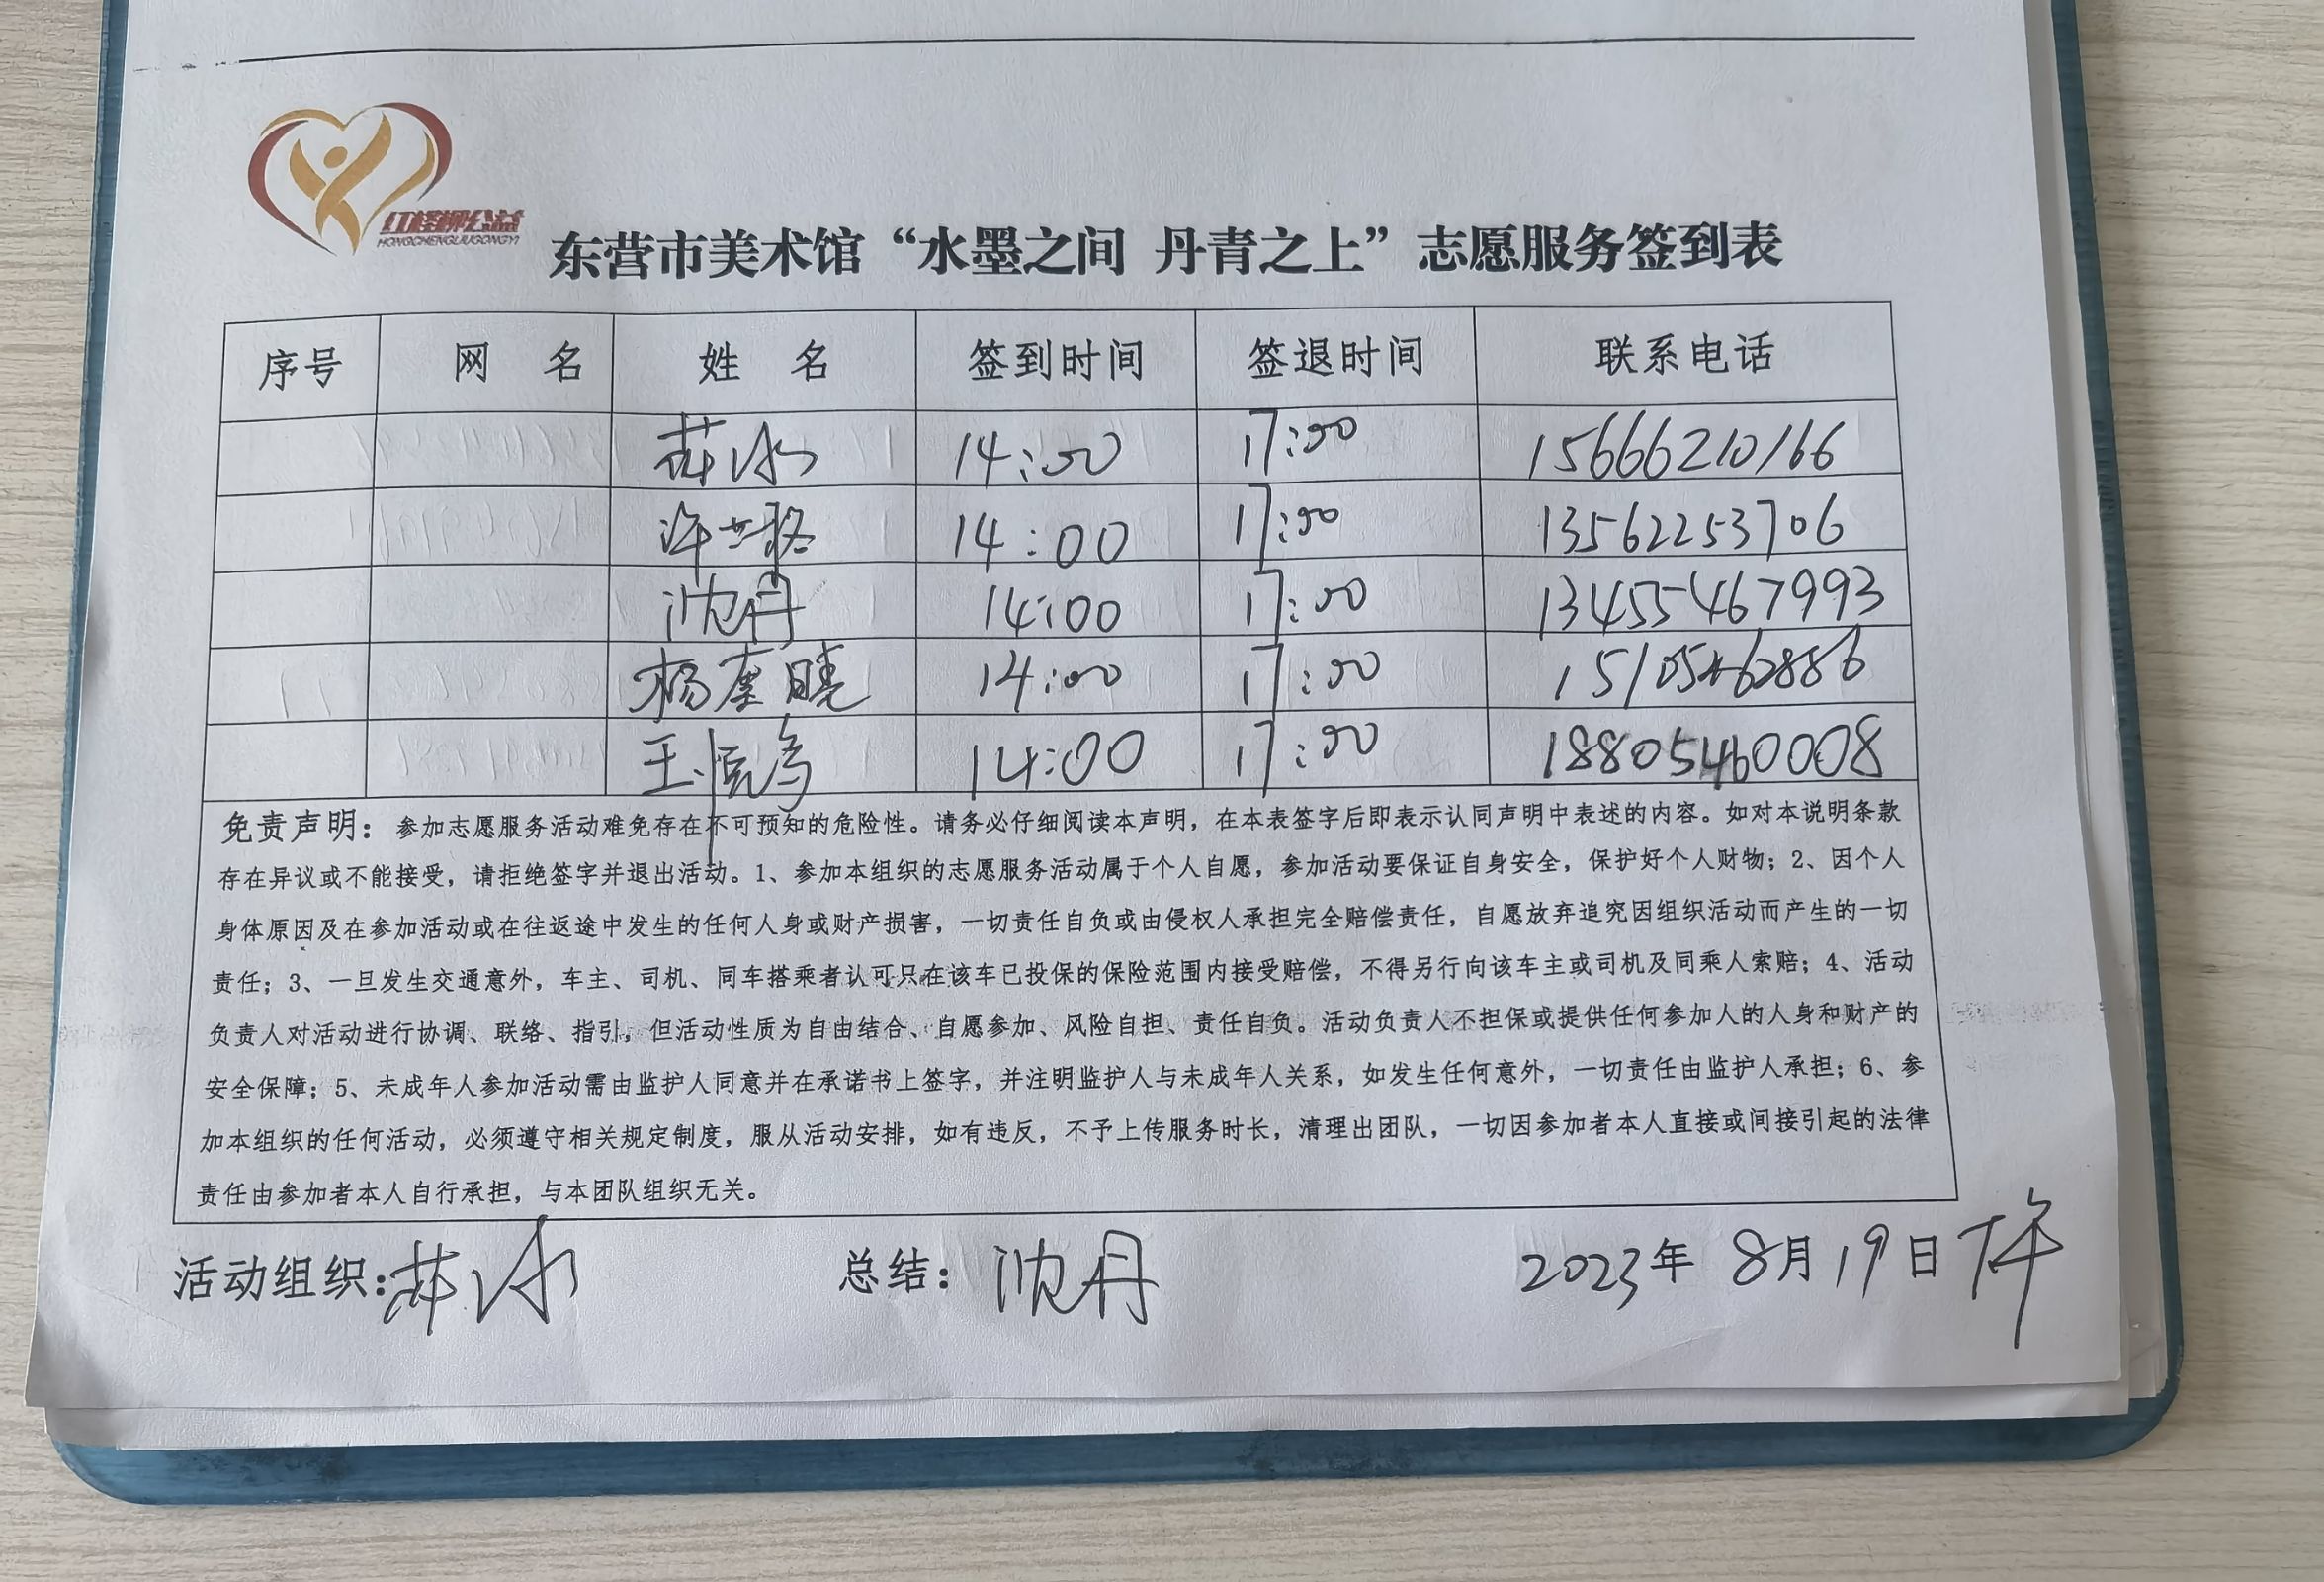 红柽柳公益
HONGCHENGLIUGONGYI
东营市美术馆“水墨之间 丹青之上”志愿服务签到表
序号 网 名 姓 名 签到时间 签退时间 联系电话
14:00 17:00 15666210166
14:00 17:00 13562253706
沈丹 14:00 17:00 134555467993
14:00 17:00 15105462886
14:00 17:00 18805460008
免责声明：参加志愿服务活动难免存在不可预知的危险性。请务必仔细阅读本声明，在本表签字后即表示认同声明中表述的内容。如对本说明条款
存在异议或不能接受，请拒绝签字并退出活动。1、参加本组织的志愿服务活动属于个人自愿，参加活动要保证自身安全，保护好个人财物；2、因个人
身体原因及在参加活动或在往返途中发生的任何人身或财产损害，一切责任自负或由侵权人承担完全赔偿责任，自愿放弃追究因组织活动而产生的一切
责任；3、一旦发生交通意外，车主、司机、同车搭乘者认可只在该车已投保的保险范围内接受赔偿，不得另行向该车主或司机及同乘人索赔；4、活动
负责人对活动进行协调、联络、指引，但活动性质为自由结合、自愿参加、风险自担、责任自负。活动负责人不担保或提供任何参加人的人身和财产的
安全保障；5、未成年人参加活动需由监护人同意并在承诺书上签字，并注明监护人与未成年人关系，如发生任何意外，一切责任由监护人承担；6、参
加本组织的任何活动，必须遵守相关规定制度，服从活动安排，如有违反，不予上传服务时长，清理出团队，一切因参加者本人直接或间接引起的法律
责任由参加者本人自行承担，与本团队组织无关。
活动组织： 总结：沈丹 2023年 8月19日下午